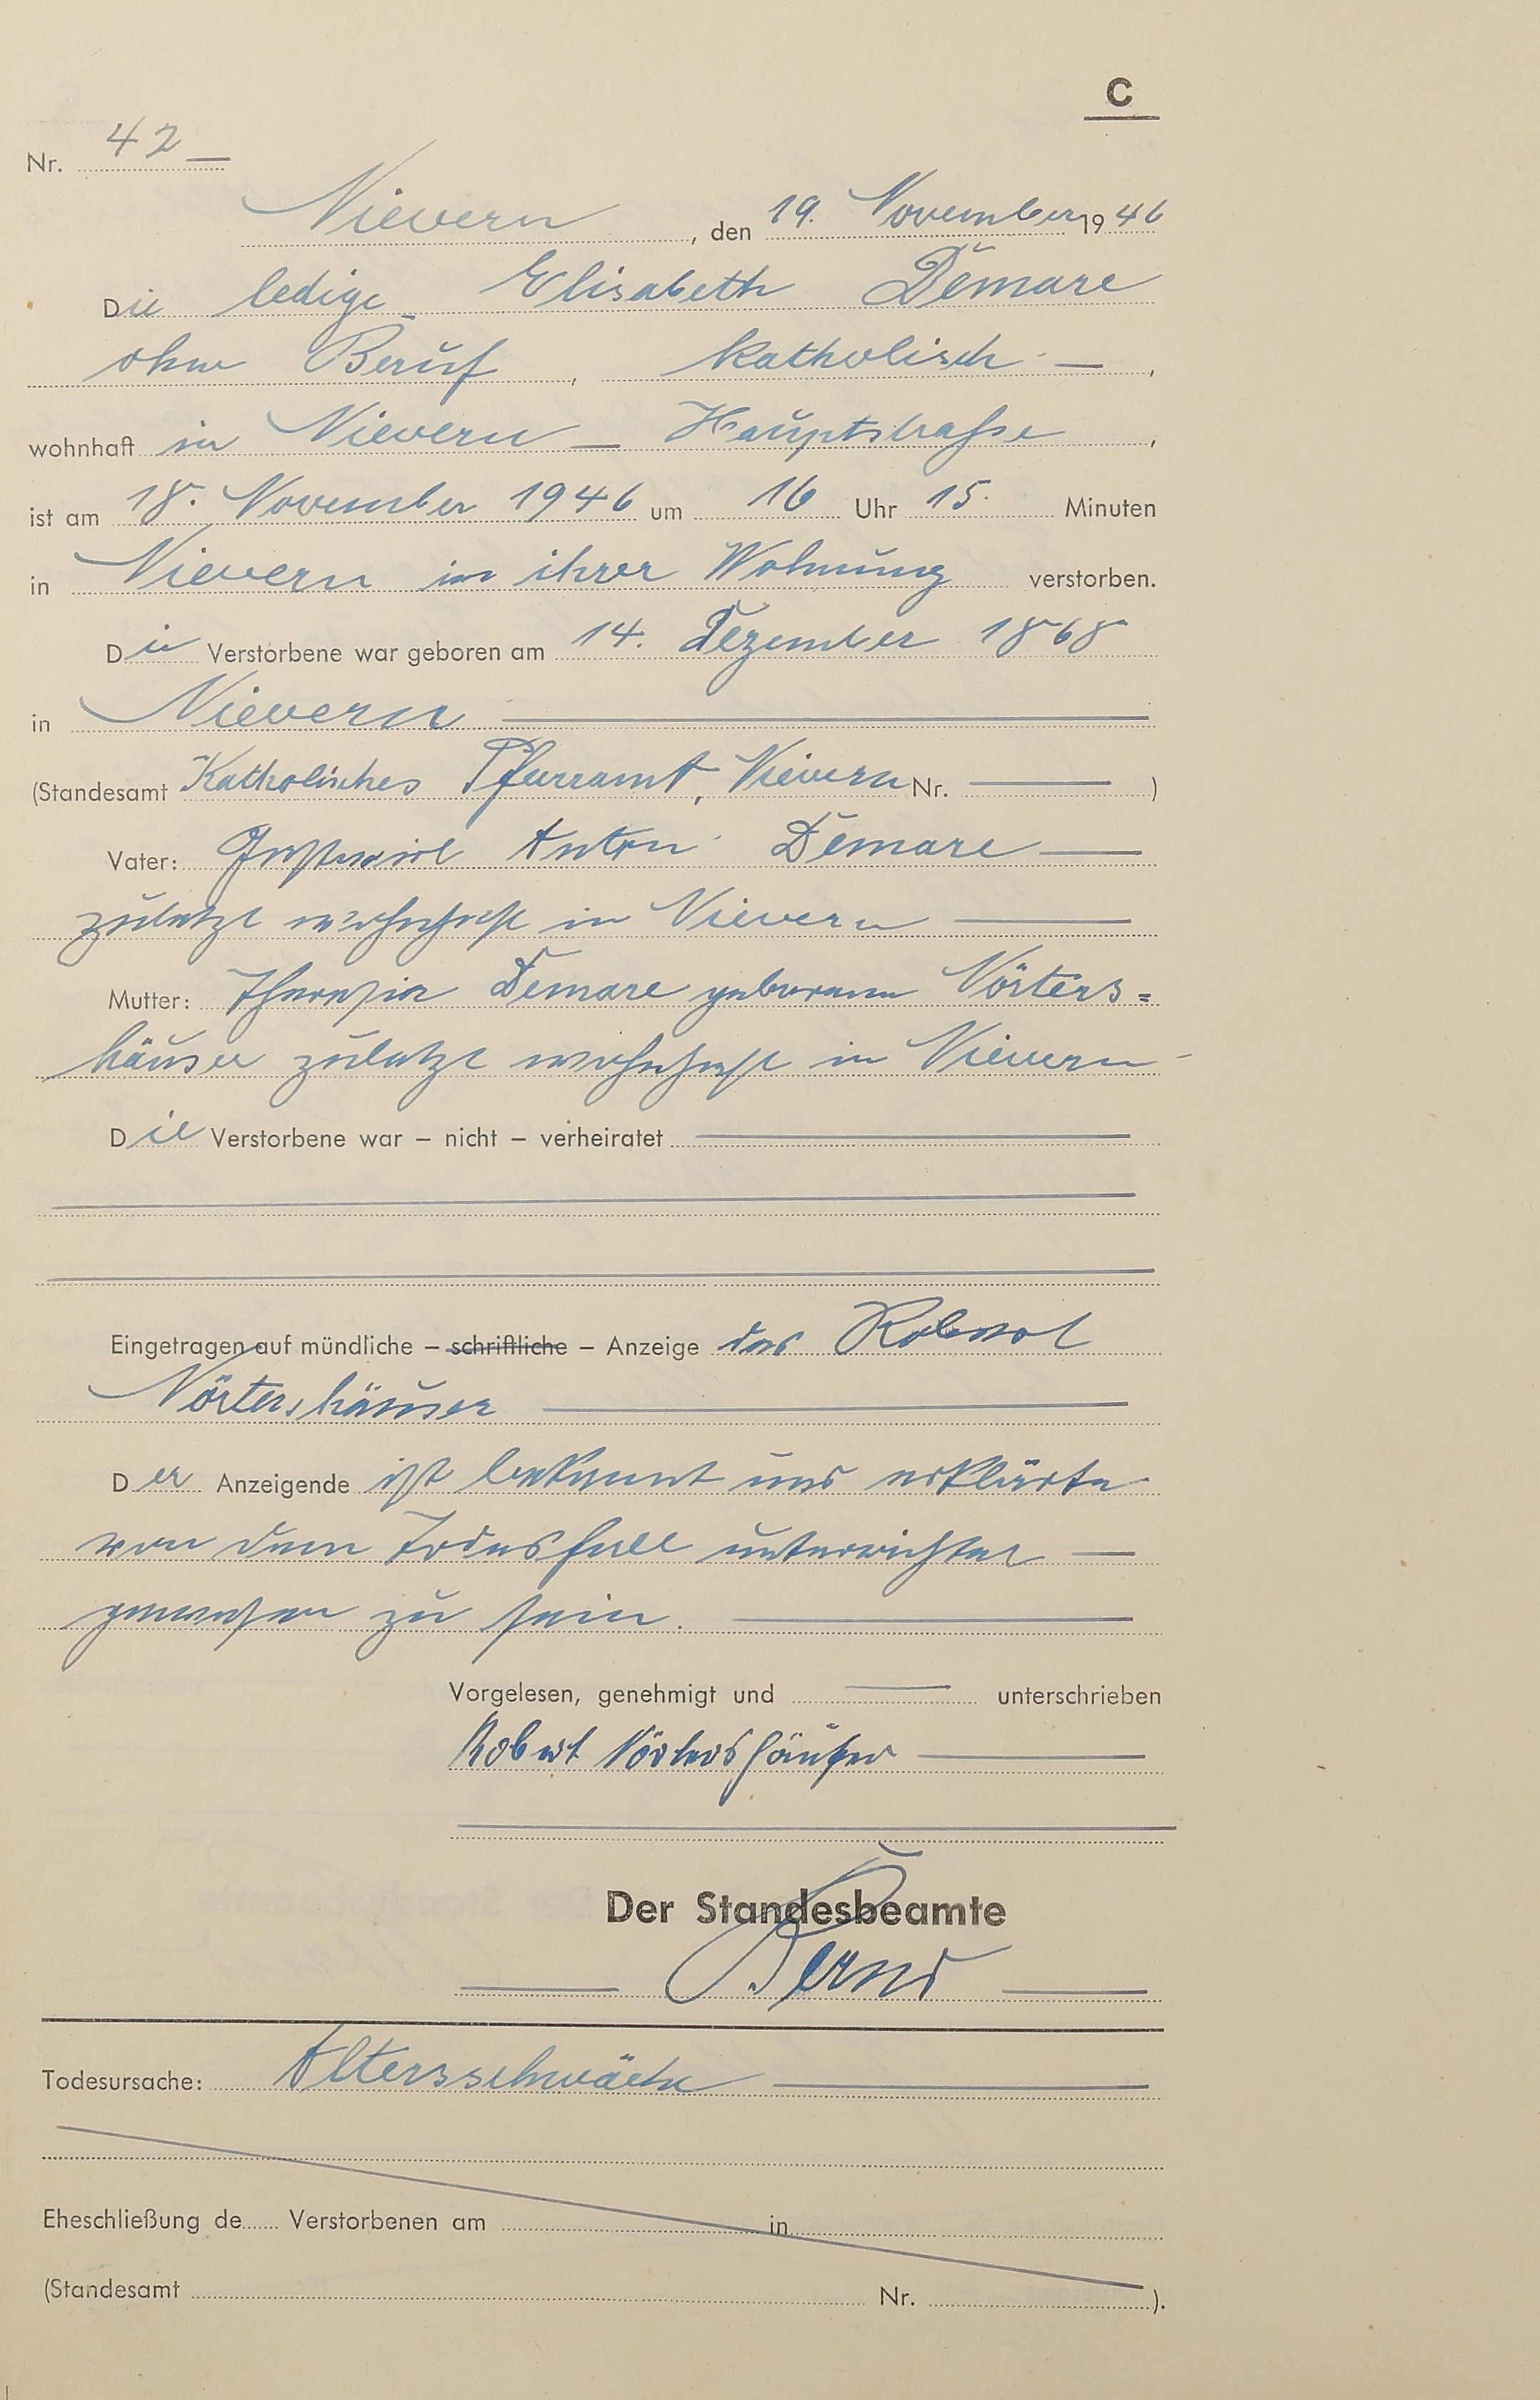 C
Nr. 42 —
Nievern, den 19. November 1946
Die ledige Elisabeth Demare
ohne Beruf, katholisch —,
wohnhaft in Nievern — Hauptstraße,
ist am 18. November 1946 um 16 Uhr 15. Minuten
in Nievern in ihrer Wohnung verstorben.
Die Verstorbene war geboren am 14. Dezember 1868
in Nievern —
(Standesamt Katholisches Pfarramt, Nievern Nr. — )
Vater: Anton Demare —
zuletzt wohnhaft in Nievern —
Mutter: Theresia Demare geborene Nörters=
häuser zuletzt wohnhaft in Nievern —
Die Verstorbene war – nicht – verheiratet —
Eingetragen auf mündliche – schriftliche – Anzeige des Robert
Nörtershäuser —
Der Anzeigende ist bekannt und erklärte
von dem Todesfall unterrichtet —
gewesen zu sein. —
Vorgelesen, genehmigt und — unterschrieben
Robert Nörtershäuser —
Der Standesbeamte
— —
Todesursache: Altersschwäche —
Eheschließung de Verstorbenen am in
(Standesamt Nr. ).